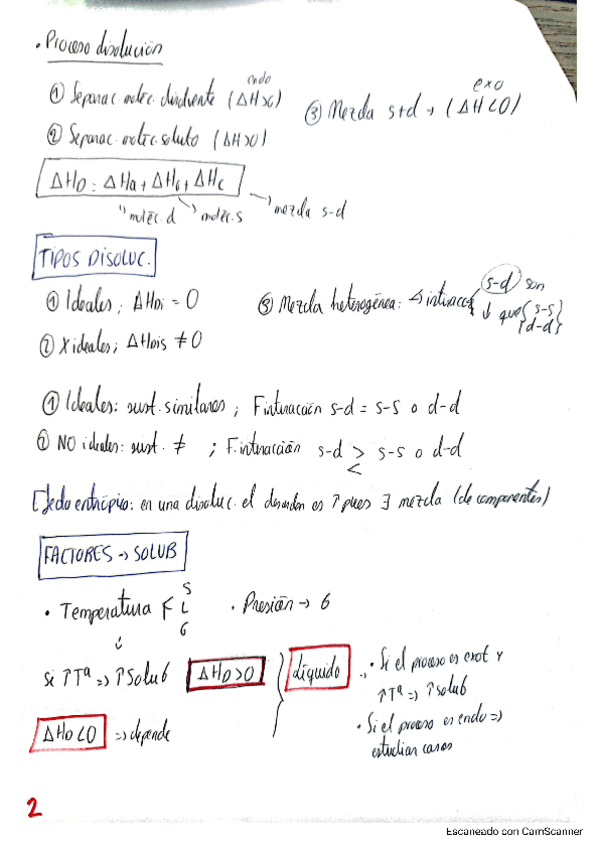 · Proceso disolución
endo
① Separac. moléc. disolvente (ΔH>0)
② Separac. moléc. soluto (ΔH>0)
exo
③ Mezcla s+d → (ΔH<0)
ΔHD = ΔHa + ΔHb + ΔHc
molec. d
moléc. s
mezcla s-d
TIPOS DISOLUC.
① Ideales; ΔHDi = 0
② X ideales; ΔHDis ≠ 0
③ Mezcla heterogénea: s-d son
↓ que {s-s}
{d-d}
① Ideales: sust. similares; F interacción s-d = s-s o d-d
② NO ideales: sust. ≠ ; F. interacción s-d > s-s o d-d
<
Efecto entrópico: en una disoluc. el desorden es ↑ pues ∃ mezcla (de componentes)
FACTORES → SOLUB
· Temperatura F S L G
· Presión → G
↓
si ↑Tª => ↑Solub ΔHD>0
ΔHD<0 => depende
Líquido
· Si el proceso es exot y
↑Tª => ↑solub
· Si el proceso es endo =>
estudiar casos
2
Escaneado con CamScanner